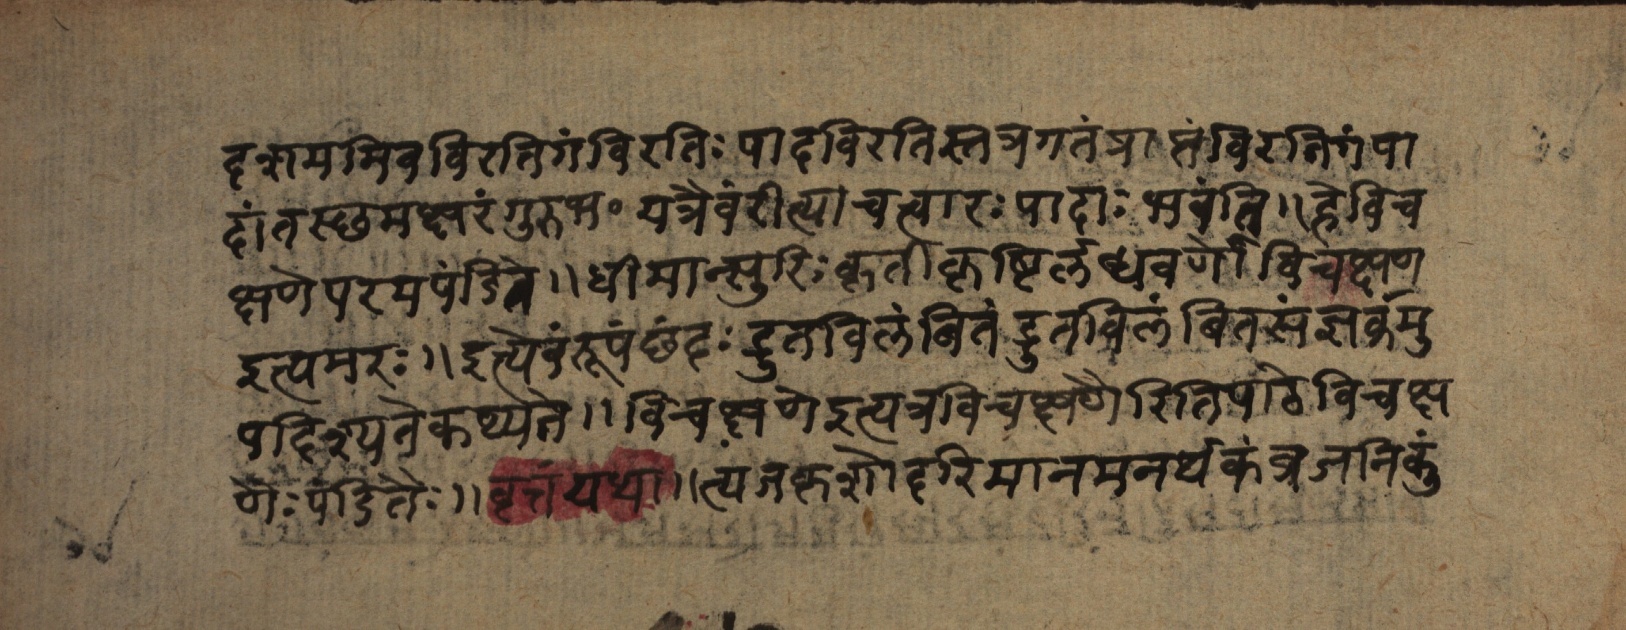 दृशमममिव विरतिगं विरतिः पादविरतिस्तत्र गतं प्राप्तं विरतिगं पा
दांतस्छमक्षरं गुरुभ॰ यत्रैवंरीत्या चत्वारः पादाः भवंति ॥ हे विच
क्षणे परमपंडिते ॥ धीमान्सुरिः कृती कृष्टिर्लब्धवर्णो विचक्षण
इत्यमरः ॥ इत्येवंरूपं छंदः द्रुतविलंबितं द्रुतविलंबितसंज्ञकमु
पदिश्यते कथ्यते ॥ विचक्षणे इत्यत्र विचक्षणैरिति पाठे विचक्ष
णैः पंडितैः ॥ वृत्तं यथा ॥ त्यज कृशोदरि मानमनर्थकं व्रज निकुं